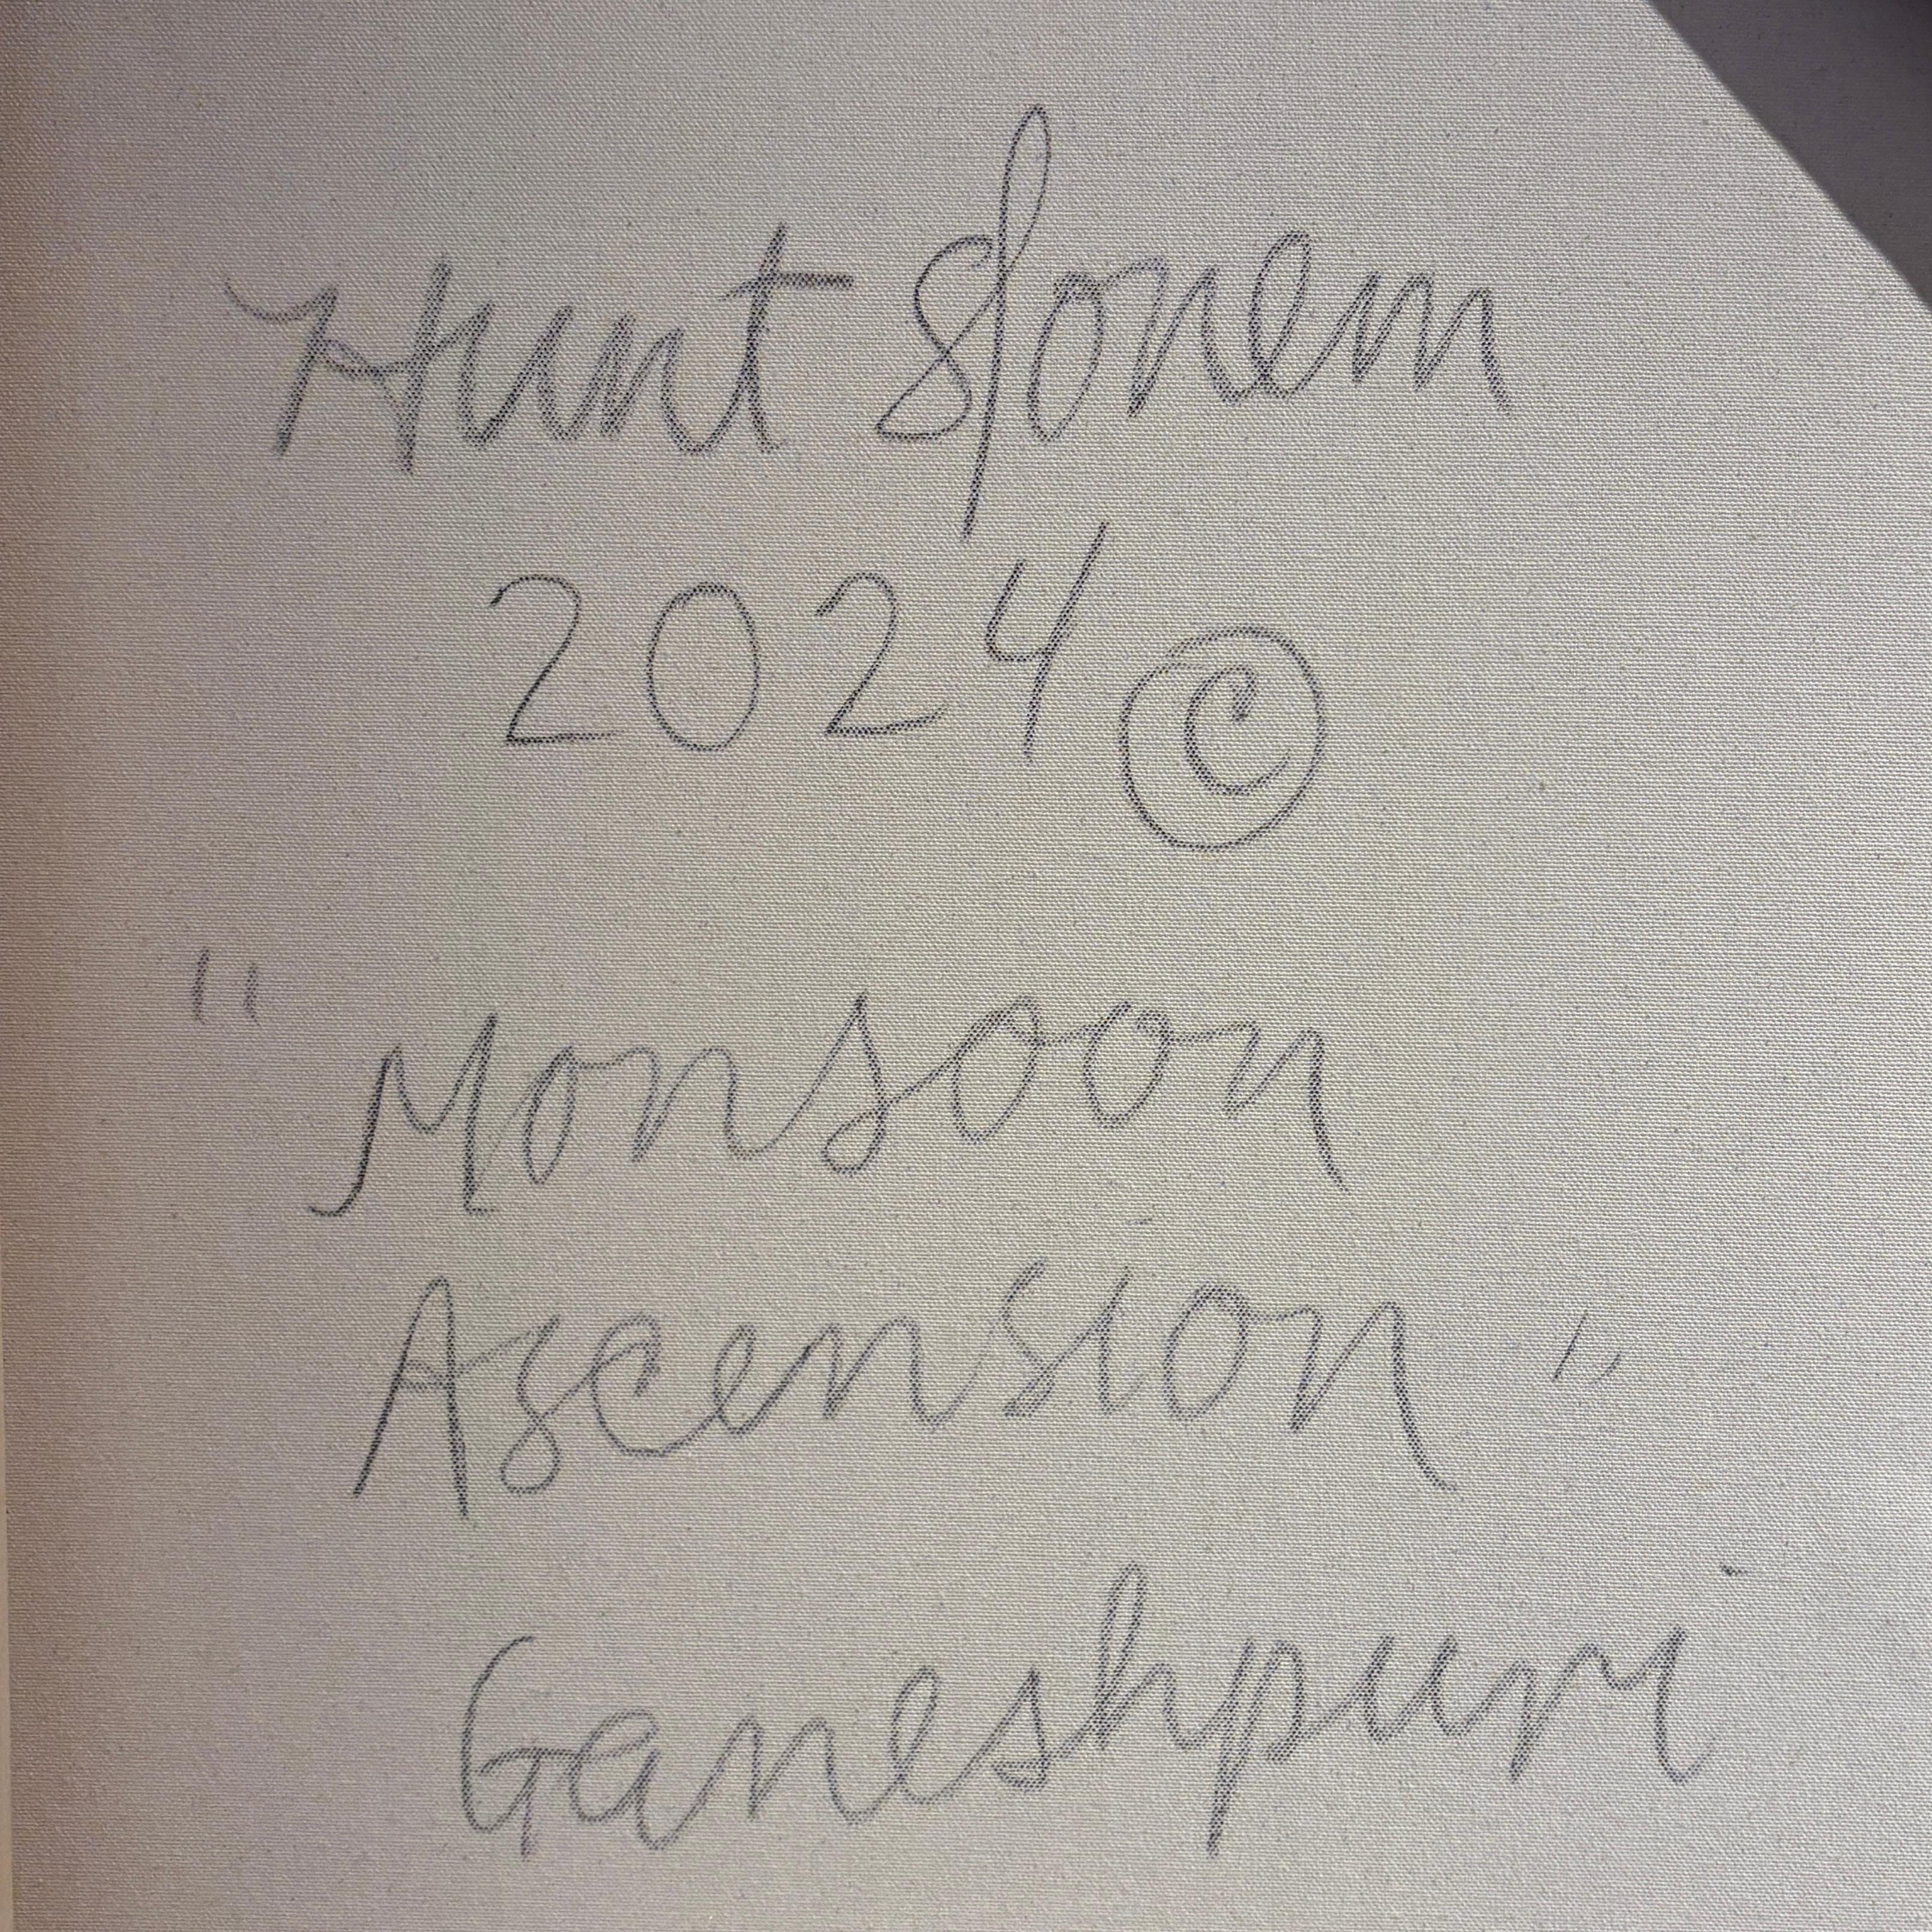 Hunt Slonem
2024 ©
"Monsoon
Ascension"
Ganeshpuri